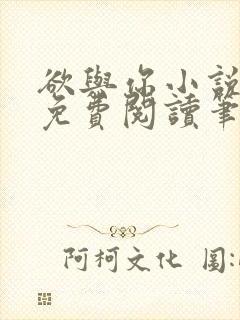 欲與你小說
免費閱讀筆
阿柯文化 圖: